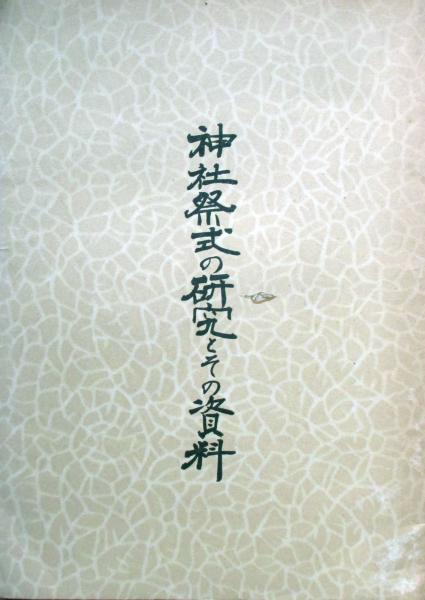 神社祭式の研究とその資料